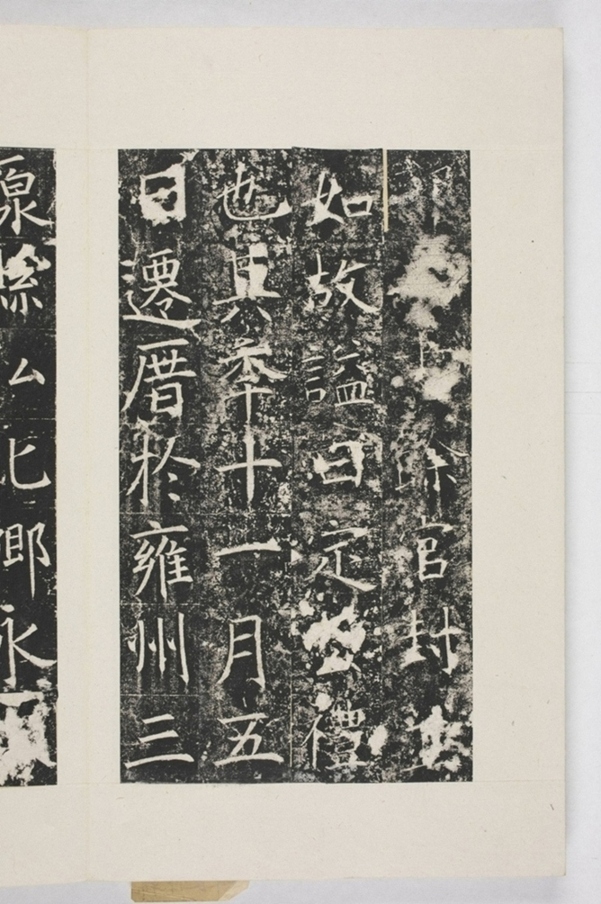 餘官封
如故謚曰定禮
也其秊十一月五
日遷厝於雍州三
原縣鄉永